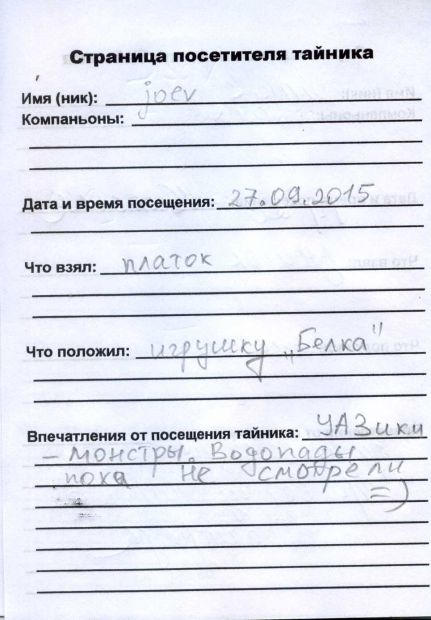 Страница посетителя тайника
Имя (ник): joev
Компаньоны:
Дата и время посещения: 27.09.2015
Что взял: платок
Что положил: игрушку „Белка"
Впечатления от посещения тайника: УАЗики
- монстры. Водопады
пока не смотрели
=)